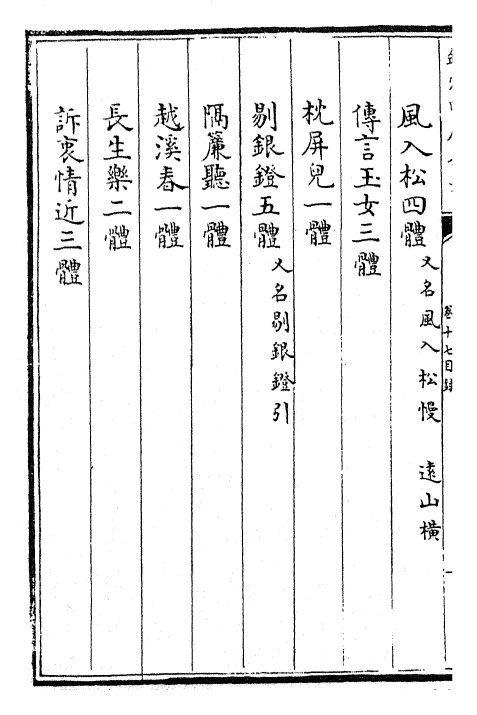 卷十七目錄
風入松四體 又名風入松慢 遠山橫
傳言玉女三體
枕屏兒一體
剔銀鐙五體 又名剔銀鐙引
隔簾聽一體
越溪春一體
長生樂二體
訴衷情近三體